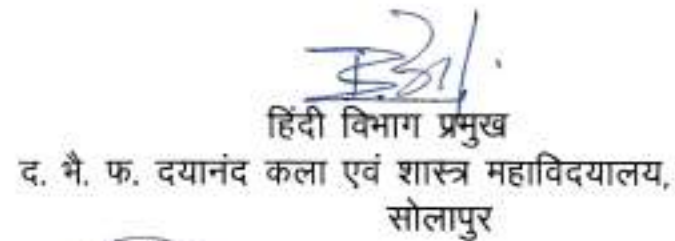 हिंदी विभाग प्रमुख
द. भै. फ. दयानंद कला एवं शास्त्र महाविदयालय,
सोलापुर